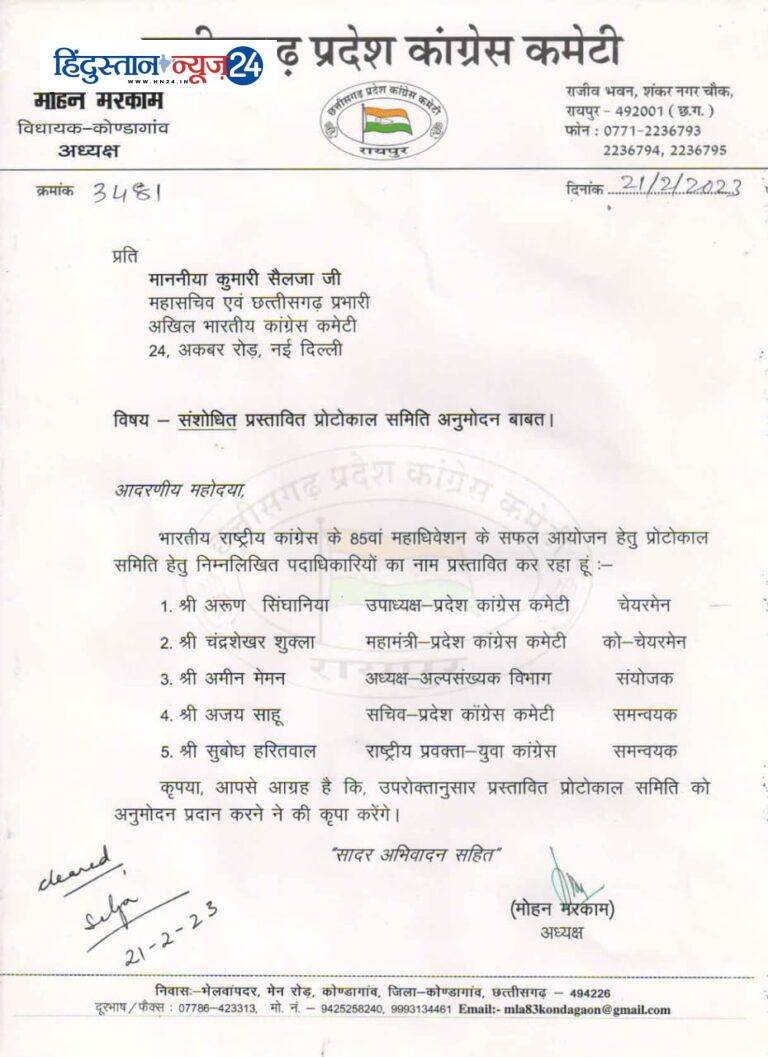 हिंदुस्तान न्यूज़ 24
WWW.HN24.IN
ढ़ प्रदेश कांग्रेस कमेटी
मोहन मरकाम
विधायक–कोण्डागांव
अध्यक्ष
छत्तीसगढ़ प्रदेश कांग्रेस कमेटी
रायपुर
राजीव भवन, शंकर नगर चौक,
रायपुर - 492001 ( छ.ग. )
फोन : 0771-2236793
2236794, 2236795
क्रमांक 3481
दिनांक 21/2/2023
प्रति
माननीया कुमारी सैलजा जी
महासचिव एवं छत्तीसगढ़ प्रभारी
अखिल भारतीय कांग्रेस कमेटी
24, अकबर रोड़, नई दिल्ली
विषय – संशोधित प्रस्तावित प्रोटोकाल समिति अनुमोदन बाबत।
छत्तीसगढ़ प्रदेश कांग्रेस कमेटी
रायपुर
आदरणीय महोदया,
भारतीय राष्ट्रीय कांग्रेस के 85वां महाधिवेशन के सफल आयोजन हेतु प्रोटोकाल
समिति हेतु निम्नलिखित पदाधिकारियों का नाम प्रस्तावित कर रहा हूं :–
1. श्री अरूण सिंघानिया उपाध्यक्ष–प्रदेश कांग्रेस कमेटी चेयरमेन
2. श्री चंद्रशेखर शुक्ला महामंत्री–प्रदेश कांग्रेस कमेटी को–चेयरमेन
3. श्री अमीन मेमन अध्यक्ष–अल्पसंख्यक विभाग संयोजक
4. श्री अजय साहू सचिव–प्रदेश कॉंग्रेस कमेटी समन्वयक
5. श्री सुबोध हरितवाल राष्ट्रीय प्रवक्ता–युवा कांग्रेस समन्वयक
कृपया, आपसे आग्रह है कि, उपरोक्तानुसार प्रस्तावित प्रोटोकाल समिति को
अनुमोदन प्रदान करने ने की कृपा करेंगे।
"सादर अभिवादन सहित"
cleared
Selja
21-2-23
(मोहन मरकाम)
अध्यक्ष
निवासः–भेलवांपदर, मेन रोड़, कोण्डागांव, जिला–कोण्डागांव, छत्तीसगढ़ – 494226
दूरभाष/फैक्स : 07786-423313, मो. नं. – 9425258240, 9993134461 Email:- mla83kondagaon@gmail.com